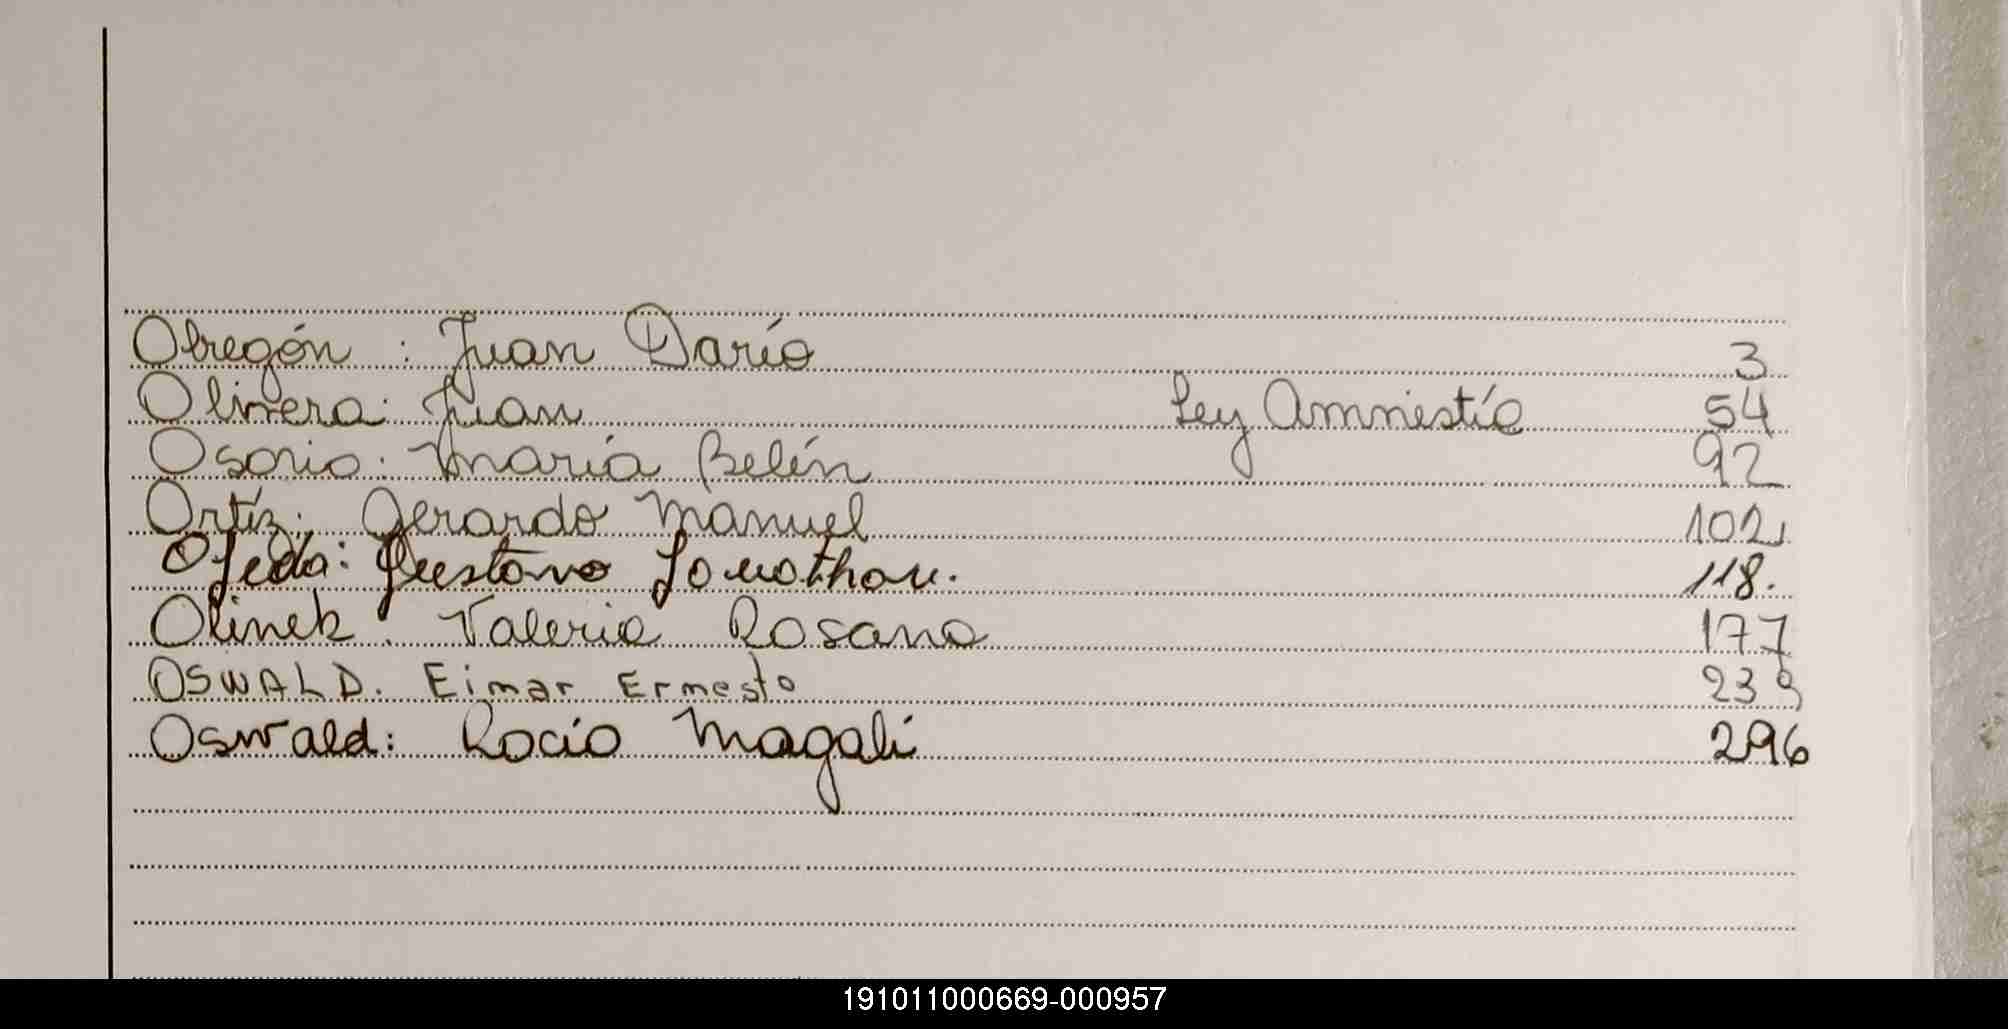 Obregón : Juan Darío 3
Olivera: Juan Ley Amnistía 54
Osorio: María Belén 92
Ortíz: Gerardo Manuel 102
Ojeda: Gustavo Jonathan. 118.
Olinek. Valeria Rosana 177
OSWALD. Eimar Ernesto 239
Oswald: Rocio Magali 296
191011000669-000957